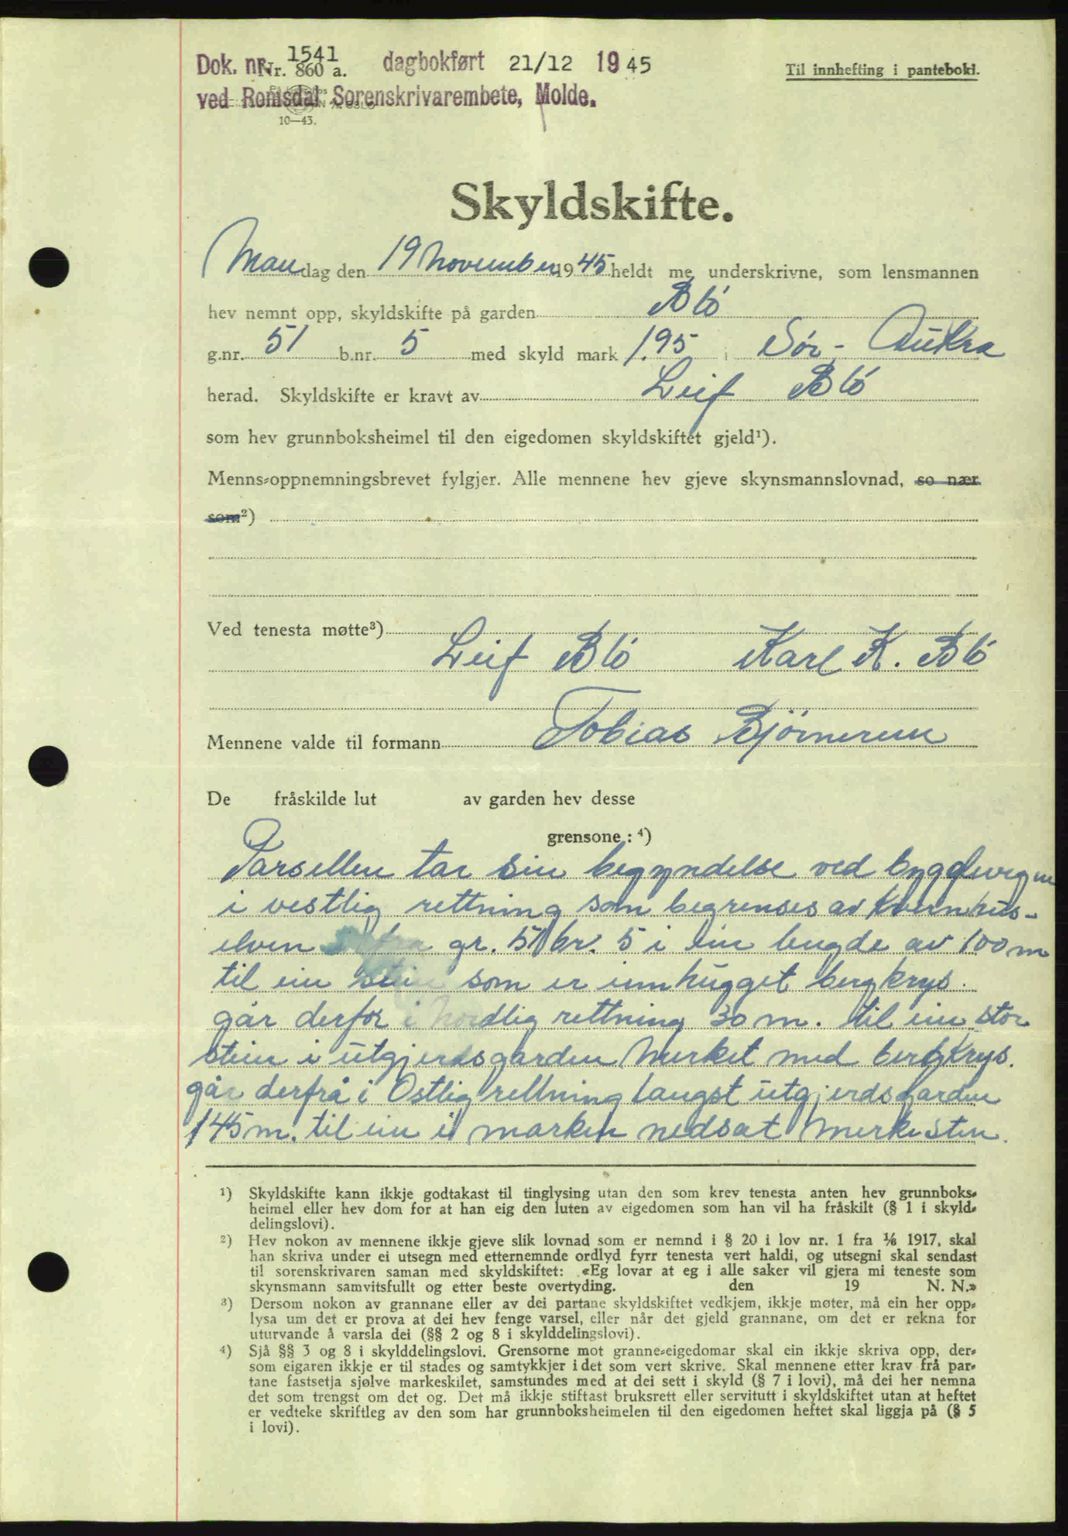 Dok. nr. 1541 dagbokført 21/12 1945
Nr. 860 a.
Til innhefting i panteboki.
ved Romsdal Sorenskrivarembete, Molde.
10—43.
Skyldskifte.
Mandag den 19 November 1945 heldt me underskrivne, som lensmannen
hev nemnt opp, skyldskifte på garden Bló
g.nr. 51 b.nr. 5 med skyld mark 1.95 i Sør-Aukra
herad. Skyldskifte er kravt av Leif Bló
som hev grunnboksheimel til den eigedomen skyldskiftet gjeld¹).
Menns-oppnemningsbrevet fylgjer. Alle mennene hev gjeve skynsmannslovnad, so nær
som²)
Ved tenesta møtte³)
Leif Bló Karl K. Bló
Mennene valde til formann Tobias Bjørnerem
De fråskilde lut av garden hev desse
grensone: ⁴)
Parsellen tar sin begyndelse ved bygdevegen
i vestlig rettning som begrenses av Kvernhus-
elven gr. 51 br. 5 i ein lengde av 100 m
til ein stein som er innhugget bergkrys.
går derfor i Nordlig rettning 30 m. til ein stor
stein i utgjerdsgarden Merket med bergKrys.
går derfrå i Ostlig rettning langst utgjerdsgarden
145 m. til ein i marken nedsat Merkesten.
¹) Skyldskifte kann ikkje godtakast til tinglysing utan den som krev tenesta anten hev grunnboks-
heimel eller hev dom for at han eig den luten av eigedomen som han vil ha fråskilt (§ 1 i skyld-
delingslovi).
²) Hev nokon av mennene ikkje gjeve slik lovnad som er nemnd i § 20 i lov nr. 1 fra 1/6 1917, skal
han skriva under ei utsegn med etternemnde ordlyd fyrr tenesta vert haldi, og utsegni skal sendast
til sorenskrivaren saman med skyldskiftet: «Eg lovar at eg i alle saker vil gjera mi teneste som
skynsmann samvitsfullt og etter beste overtyding. den 19 N. N.»
³) Dersom nokon av grannane eller av dei partane skyldskiftet vedkjem, ikkje møter, må ein her opp-
lysa um det er prova at dei hev fenge varsel, eller når det gjeld grannane, om det er rekna for
uturvande å varsla dei (§§ 2 og 8 i skylddelingslovi).
⁴) Sjå §§ 3 og 8 i skylddelingslovi. Grensorne mot granne-eigedomar skal ein ikkje skriva opp, der-
som eigaren ikkje er til stades og samtykkjer i det som vert skrive. Skal mennene etter krav frå par-
tane fastsetja sjølve markeskilet, samstundes med at dei sett i skyld (§ 7 i lovi), må dei her nemna
det som trengst om det og. Det må ikkje stiftast bruksrett eller servitutt i skyldskiftet utan at heftet
er vedteke skriftleg av den som har grunnboksheimelen til den eigedomen heftet skal liggja på (§ 5
i lovi).